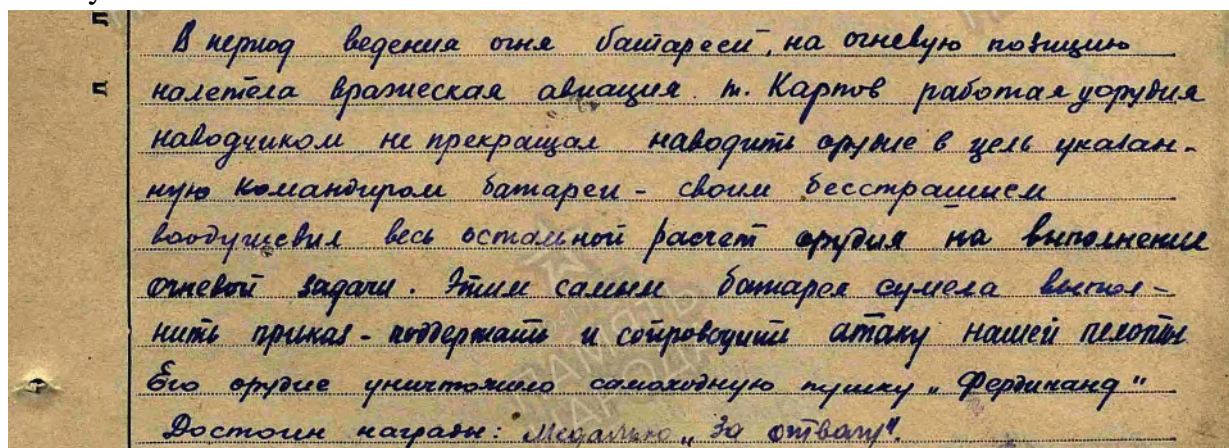 В период ведения огня батареей, на огневую позицию
налетела вражеская авиация. т. Карпов работая у орудия
наводчиком не прекращал наводить орудие в цель указан-
ную командиром батареи - своим бесстрашием
воодушевил весь остальной расчет орудия на выполнение
огневой задачи. Этим самым батарея сумела выпол-
нить приказ - поддержать и сопроводить атаку нашей пехоты.
Его орудие уничтожило самоходную пушку „Фердинанд"
Достоин награды: Медалью „За отвагу".